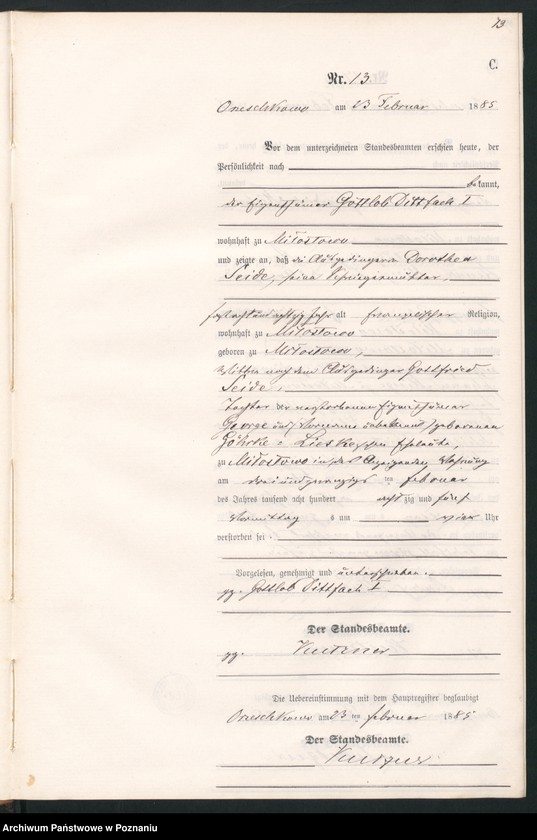 13
C.
Nr. 13.
Orzeschkowo am 23 Februar 1885
Vor dem unterzeichneten Standesbeamten erschien heute, der
Persönlichkeit nach
bekannt,
der Eigenthümer Gottlob Dittfach I
wohnhaft zu Miłostowo
und zeigte an, daß die Dorothea
Seide, seine Schwiegermutter,
achtundachtzig Jahr alt evangelischer Religion,
wohnhaft zu Miłostowo
geboren zu Miłostowo,
Wittwe nach dem Gottfried
Seide,
Tochter der verstorbenen Eigenthümer
George und Vorname unbekannt geborenen
Göhrke - Lieske'schen Eheleute,
zu Miłostowo in des Anzeigenden Wohnung
am drei und zwanzigsten Februar
des Jahres tausend acht hundert achtzig und fünf
Vormittags um vier Uhr
verstorben sei.
Vorgelesen, genehmigt und unterschrieben.
gz. Gottlob Dittfach I
Der Standesbeamte.
gz.
Die Uebereinstimmung mit dem Hauptregister beglaubigt
Orzeschkowo am 23 ten Februar 1885
Der Standesbeamte.
Archiwum Państwowe w Poznaniu